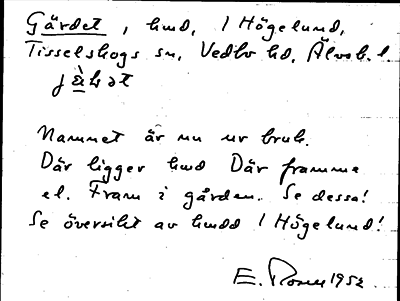 Gärdet, hmd, 1 Högelund,
Tisselskogs sn, Vedbo hd, Älvsb. l.
jàḷət
Namnet är nu ur bruk.
Där ligger hmd Där framme
el. Fram i gården. Se dessa!
Se översikt av hmdd 1 Högelund!
E. Rosen 1952